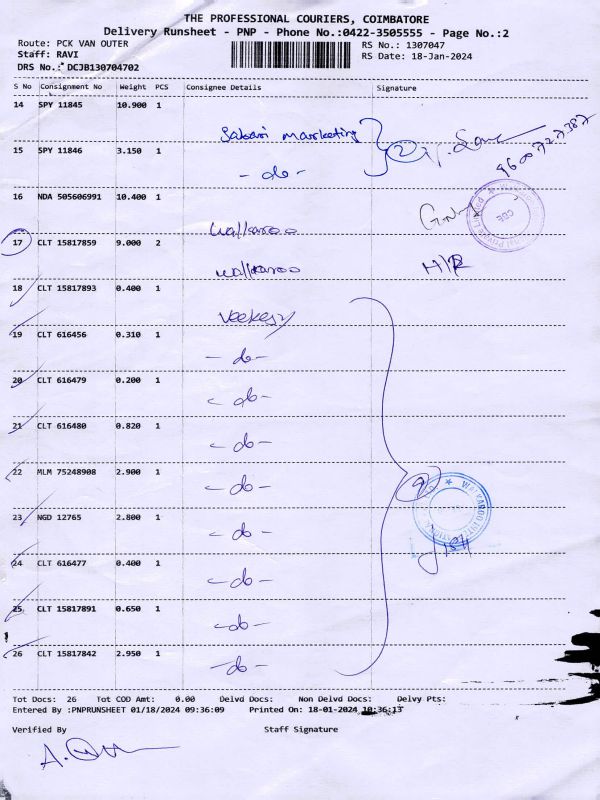 THE PROFESSIONAL COURIERS, COIMBATORE
Delivery Runsheet - PNP - Phone No.:0422-3505555 - Page No.:2
Route: PCK VAN OUTER RS No.: 1307047
Staff: RAVI RS Date: 18-Jan-2024
DRS No.: DCJB130704702
S No Consignment No Weight PCS Consignee Details Signature
14 SPY 11845 10.900 1
Sabari marketing
15 SPY 11846 3.150 1
- do - 2 9600727387
16 NDA 505606991 10.400 1
walkaroo
17 CLT 15817859 9.000 2
walkaroo
18 CLT 15817893 0.400 1
Veekesy
19 CLT 616456 0.310 1
- do -
20 CLT 616479 0.200 1
- do -
21 CLT 616480 0.820 1
- do -
22 MLM 75248908 2.900 1
- do - 9
23 NGD 12765 2.800 1
- do -
24 CLT 616477 0.400 1
- do -
25 CLT 15817891 0.650 1
- do -
26 CLT 15817842 2.950 1
- do -
Tot Docs: 26 Tot COD Amt: 0.00 Delvd Docs: Non Delvd Docs: Delvy Pts:
Entered By :PNPRUNSHEET 01/18/2024 09:36:09 Printed On: 18-01-2024 10:36:13
Verified By Staff Signature